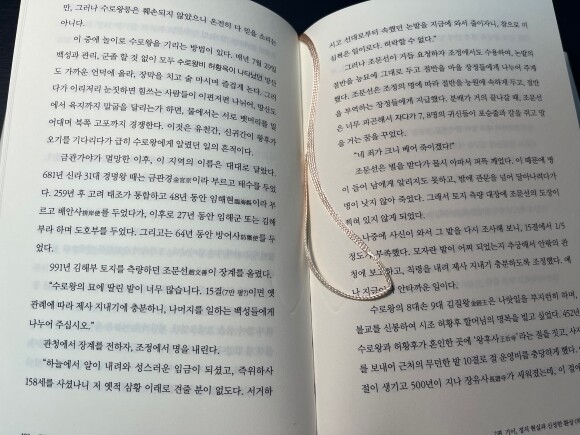 만, 그러나 수로왕릉은 훼손되지 않았으니 온전히 다 믿을 소리는
아니다.
이 중에 놀이로 수로왕을 기리는 방법이 있다. 매년 7월 29일
백성과 관리, 군졸 할 것 없이 모두 수로왕비 허황옥이 나타났던 망산
도 가까운 언덕에 올라, 장막을 치고 술 마시며 즐겁게 논다. 그러
다가 이리저리 눈짓하면 힘쓰는 사람들이 이편저편 나뉘어, 망산도
에서 육지까지 말굽을 달리는가 하면, 물에서는 서로 뱃머리를 밀
어대며 북쪽 고포까지 경쟁한다. 이것은 유천간, 신귀간이 왕후가
오기를 기다리다가 급히 수로왕에게 알렸던 일의 흔적이다.
금관가야가 멸망한 이후, 이 지역의 이름은 대대로 달랐다.
681년 신라 31대 경명왕 때는 금관경金官京이라 부르고 태수를 두었
다. 259년 후 고려 태조가 통합하고 48년 동안 임해현臨海縣이라 부
르고 배안사排岸使를 두었다가, 이후로 27년 동안 임해군 또는 김해
부라 하며 도호부를 두었다. 그리고는 64년 동안 방어사防禦使를 두
었다.
991년 김해부 토지를 측량하던 조문선趙文善이 장계를 올렸다.
“수로왕의 묘에 딸린 밭이 너무 많습니다. 15결(7만 평)이면 옛
관례에 따라 제사 지내기에 충분하니, 나머지를 일하는 백성들에게
나누어 주십시오.”
관청에서 장계를 전하자, 조정에서 명을 내린다.
“하늘에서 알이 내려와 성스러운 임금이 되셨고, 즉위하사
158세를 사셨나니 저 옛적 삼황 이래로 견줄 분이 없도다. 서거하
시고 선대로부터 속했던 논밭을 지금에 와서 줄이자니, 참으로 의
심쩍은 일이로다. 허락할 수 없다.”
그러나 조문선이 거듭 요청하자 조정에서도 수용하며, 논밭의
절반을 능묘에 그대로 두고 절반을 마을 장정들에게 나누어 주게
했다. 조문선은 조정의 명에 따라 절반을 능원에 속하게 두고, 절반
을 부역하는 장정들에게 지급했다. 분배가 거의 끝나갈 때, 조문선
은 너무 피곤해서 자다가 7, 8명의 귀신들이 포승줄과 칼을 쥐고 말
을 거는 꿈을 꾸었다.
“네 죄가 크니 베어 죽이겠다!”
조문선은 벌을 받다가 몹시 아파서 퍼뜩 깨었다. 이 때문에 병
이 들어 남에게 알리지도 못하고, 밤에 관문을 넘어 달아나려다가
병이 낫지 않아 죽었다. 그래서 토지 측량 대장에 조문선의 도장이
찍혀 있지 않게 되었다.
나중에 사신이 와서 그 밭을 다시 조사해 보니, 15결에서 1/5
정도가 부족했다. 모자란 밭이 어찌 되었는지 추궁해서 안팎의 관
청에 보고하고, 직령을 내려 제사 지내기에 충분하도록 조정했다. 예
나 지금이나 안타까운 일이다.
수로왕의 8대손 9대 김질왕金銍王은 나랏일을 부지런히 하며,
불교를 신봉하여 시조 허황후 할머님의 명복을 빌고 싶었다. 452년
수로왕과 허황후가 혼인한 곳에 ‘왕후사王后寺’라는 절을 짓고, 사
를 보내어 근처의 무던한 밭 10결로 절 운영비를 충당하게 했다.
절이 생기고 500년이 지나 장유사長遊寺가 세워졌는데, 이 절이